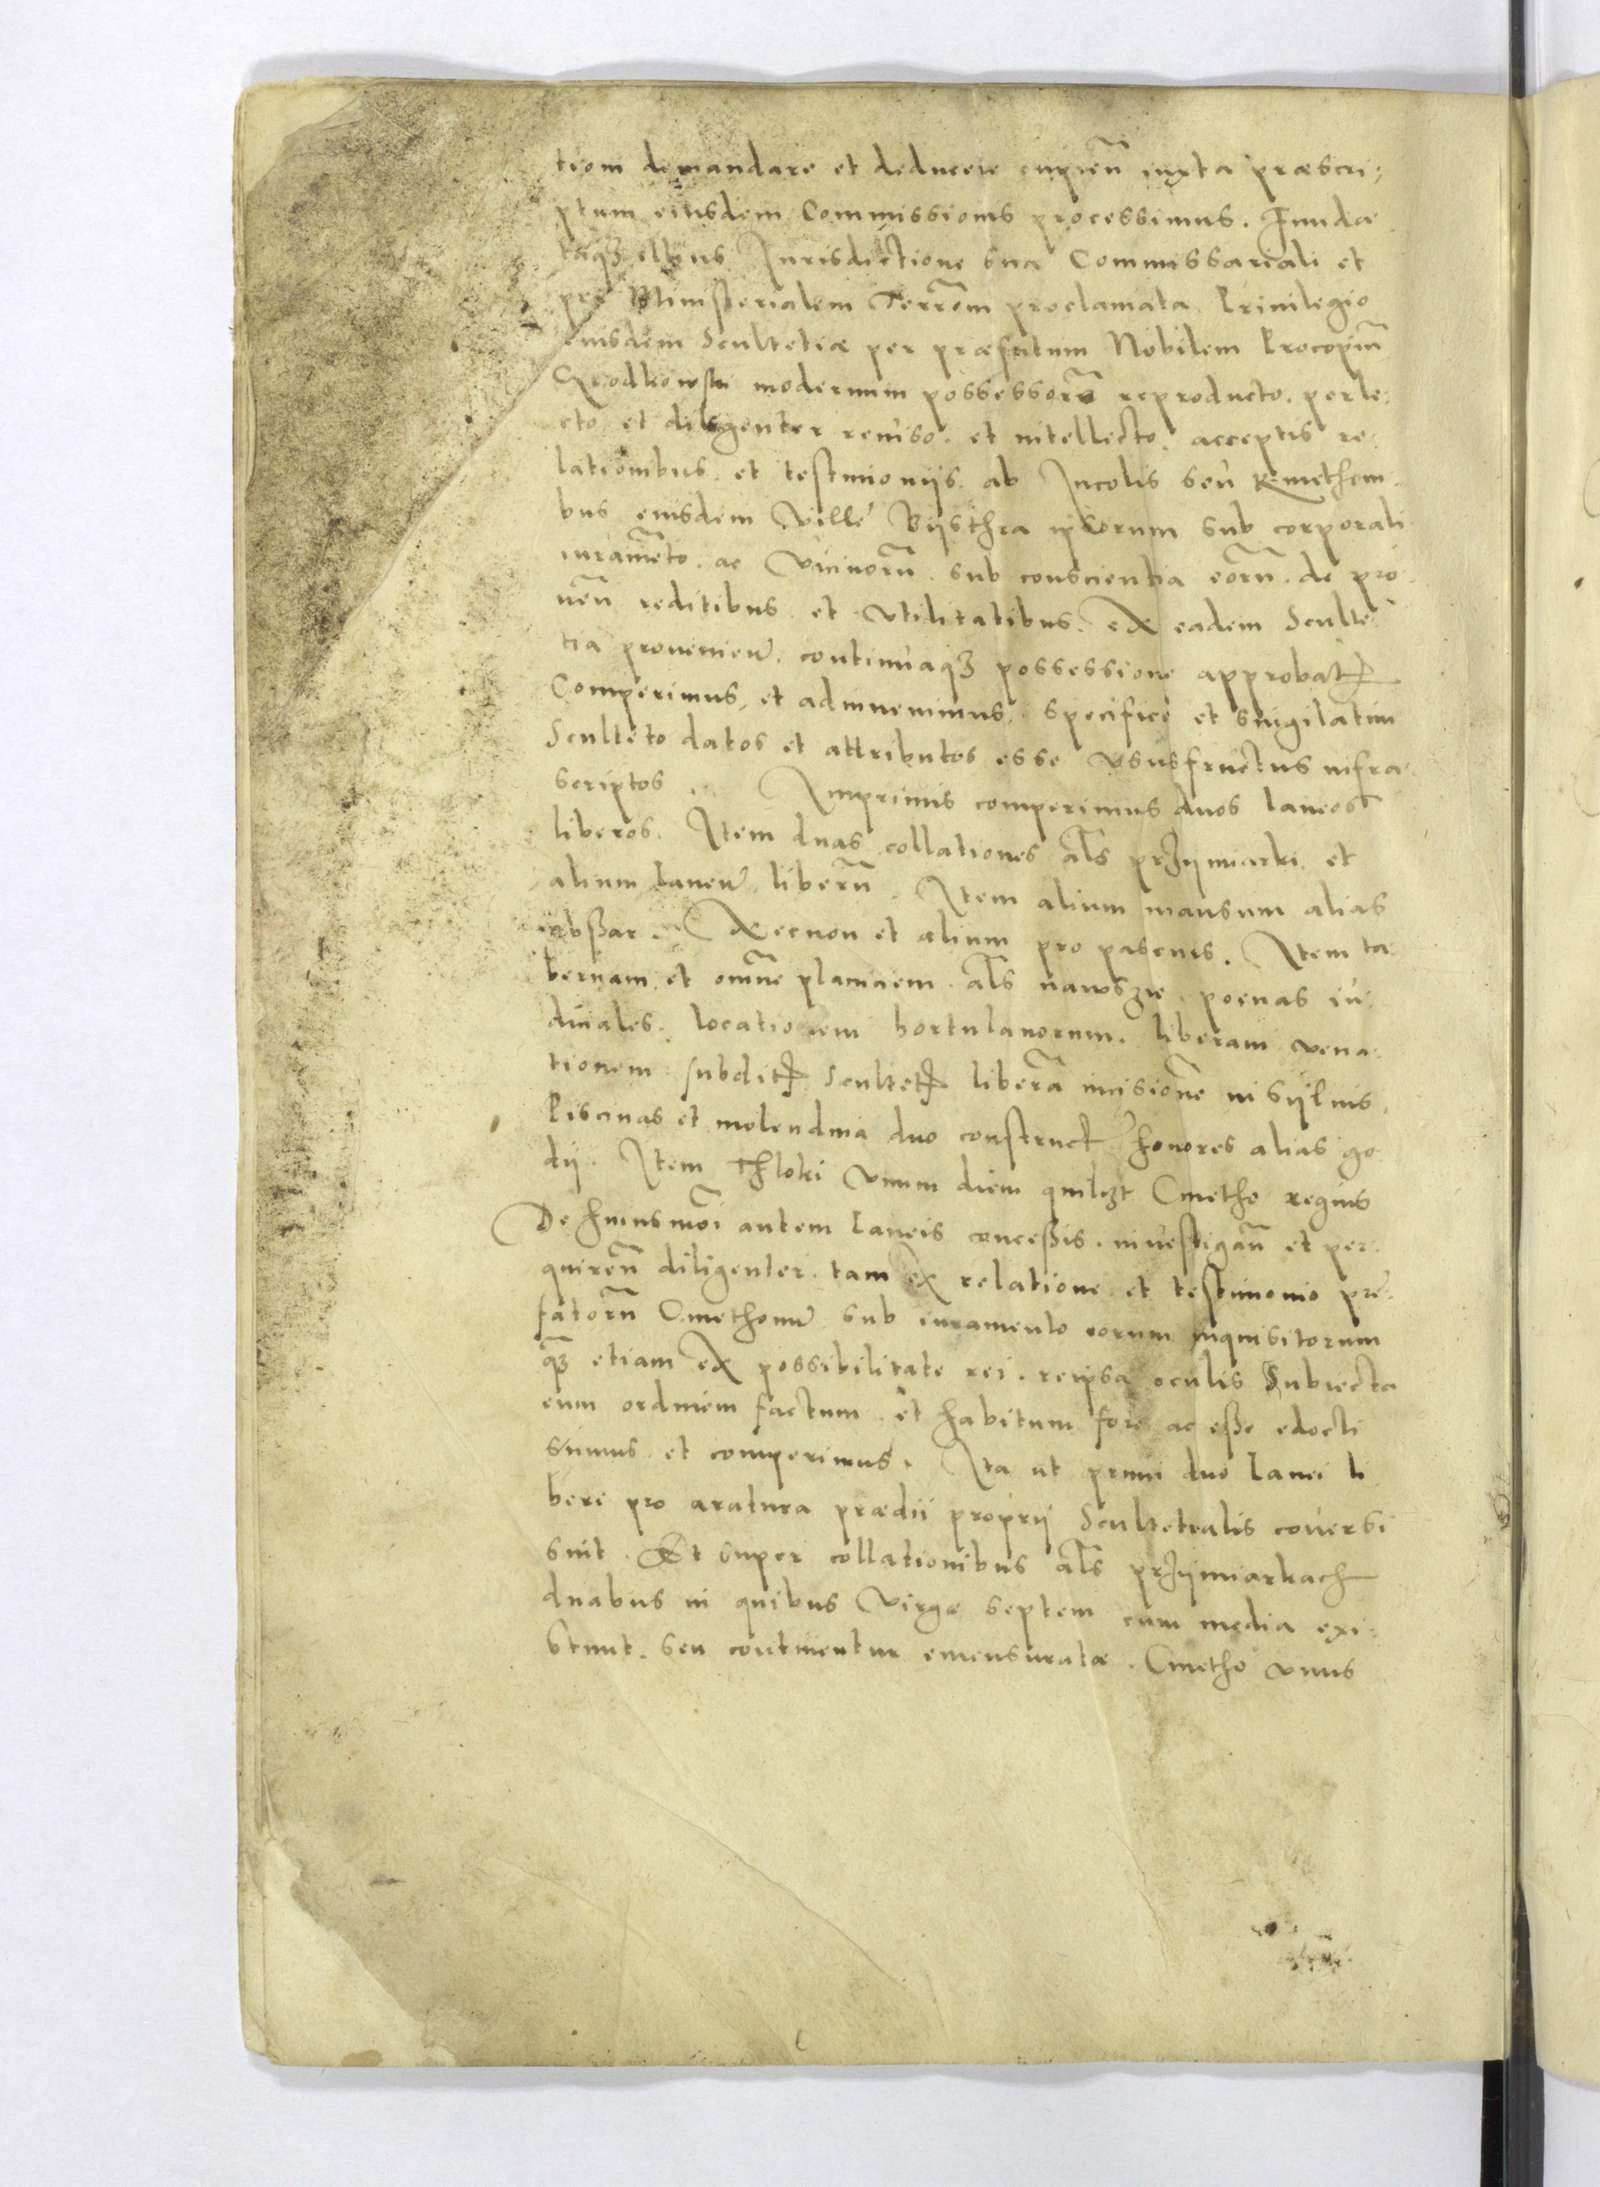 tiom demandare et deducere cupieñ iuxta præscri:
ptum eiusdem Commissionis processimus. Funda
taqȝ illius Jurisdictione sua Commissareali et
per Ministerialem Terrom̃ proclamata Privilegio
eiusdem Scultetiæ per præfatum Nobilem Procopiũ
modernum possessorẽ reproducto. perle:
cto et diligenter reviso. et intellecto. acceptis re
lationibus. et testimoniis. ab Jncolis seu Kmethom
bus eiusdem Villę Bijsthra ipsorum sub corporali
iuramẽto. ac vicinorũ. sub conscientia eorũ. de pro
ueñ reditibus et vtilitatibus. ex eadem Sculte
tia proveniew̃. continuaqȝ possessione approbatꝭ
Comperimus, et adinuenimus, specifice et singilatim
Sculteto datos et attributos esse Vsusfructus infra
scriptos. Jmprimis comperimus duos laneos
liberos. Jtem duas collationes als̃ prziimiarki et
alium laneũ liberũ. Jtem alium mansum alias
obszar. Necnon et alium pro pascuis. Jtem ta
bernam et omñe planiciem als̃ nawszie. poenas iu
diciales. locationem hortulanorum. liberam vena
tionem subditꝭ Scultetꝭ liberã incisionẽ in siiluis,
Piscinas et molendina duo construct honores alias go
dij. Jtem Thloki vnum diem quilȝt Cmetho regius
De huiusmõi autem laneis concessis. investigañ et per
quireñ diligenter. tam ex relatione et testimonio pre
fatorũ Cmethonũ sub iuramento eorum inquisitorum
qȝ etiam ex possibilitate rei. reipsa oculis Subiecta
eum ordinem factum et habitum fore ac esse edocti
sumus et comperimus. Jta ut primi duo lanei li
bere pro aratura prædii proprij Scultetialis cõuersi
sint. Et super collationibus als̃ prziimiarkach
duabus in quibus Virgæ septem cum media exi
stunt. seu continentur emensuratæ. Cmetho vnus